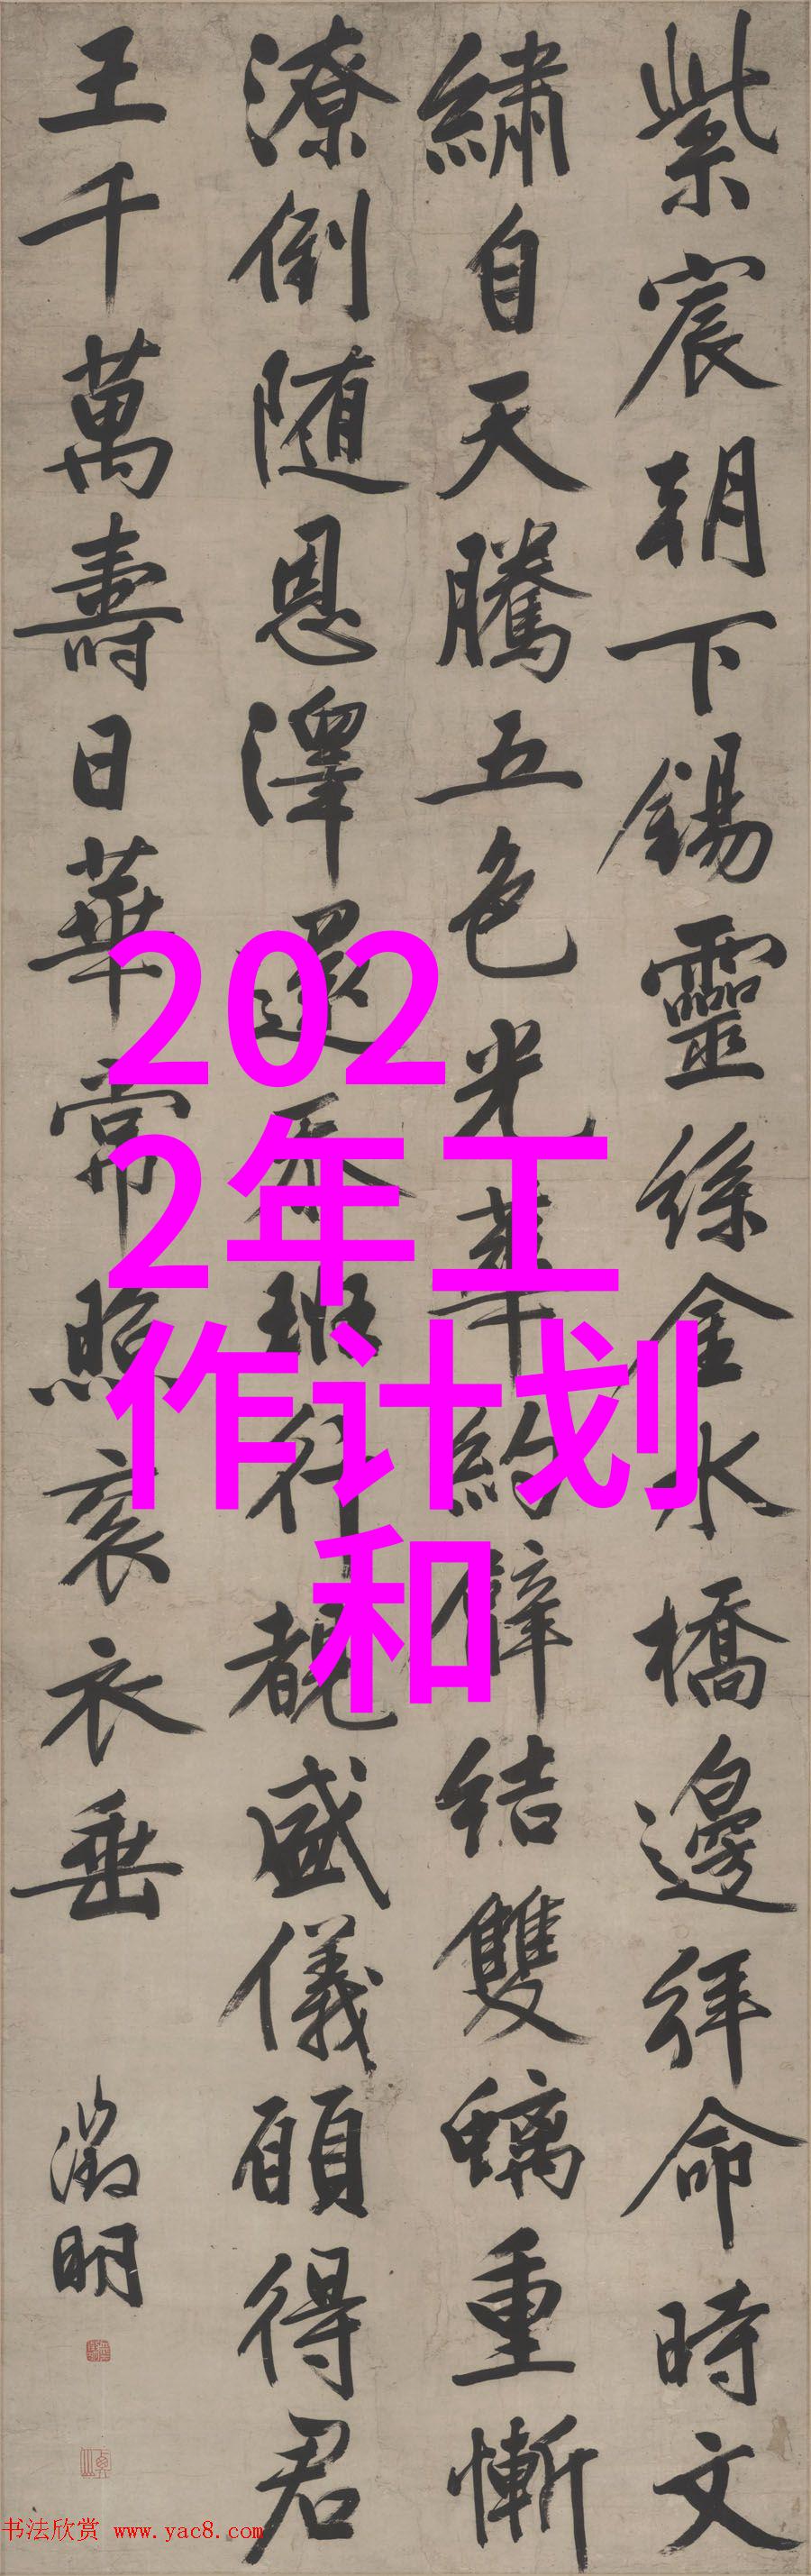 紫宸朝下錫靈絲金水橋邊拜命時文
繡自天騰五色光華約臂結雙螭重慚
潦倒随恩澤還添班行覩盛儀願得君
王千萬壽日華常照袞衣垂
徵明
202
2年工
作计划
和
书法欣赏 www.yac8.com